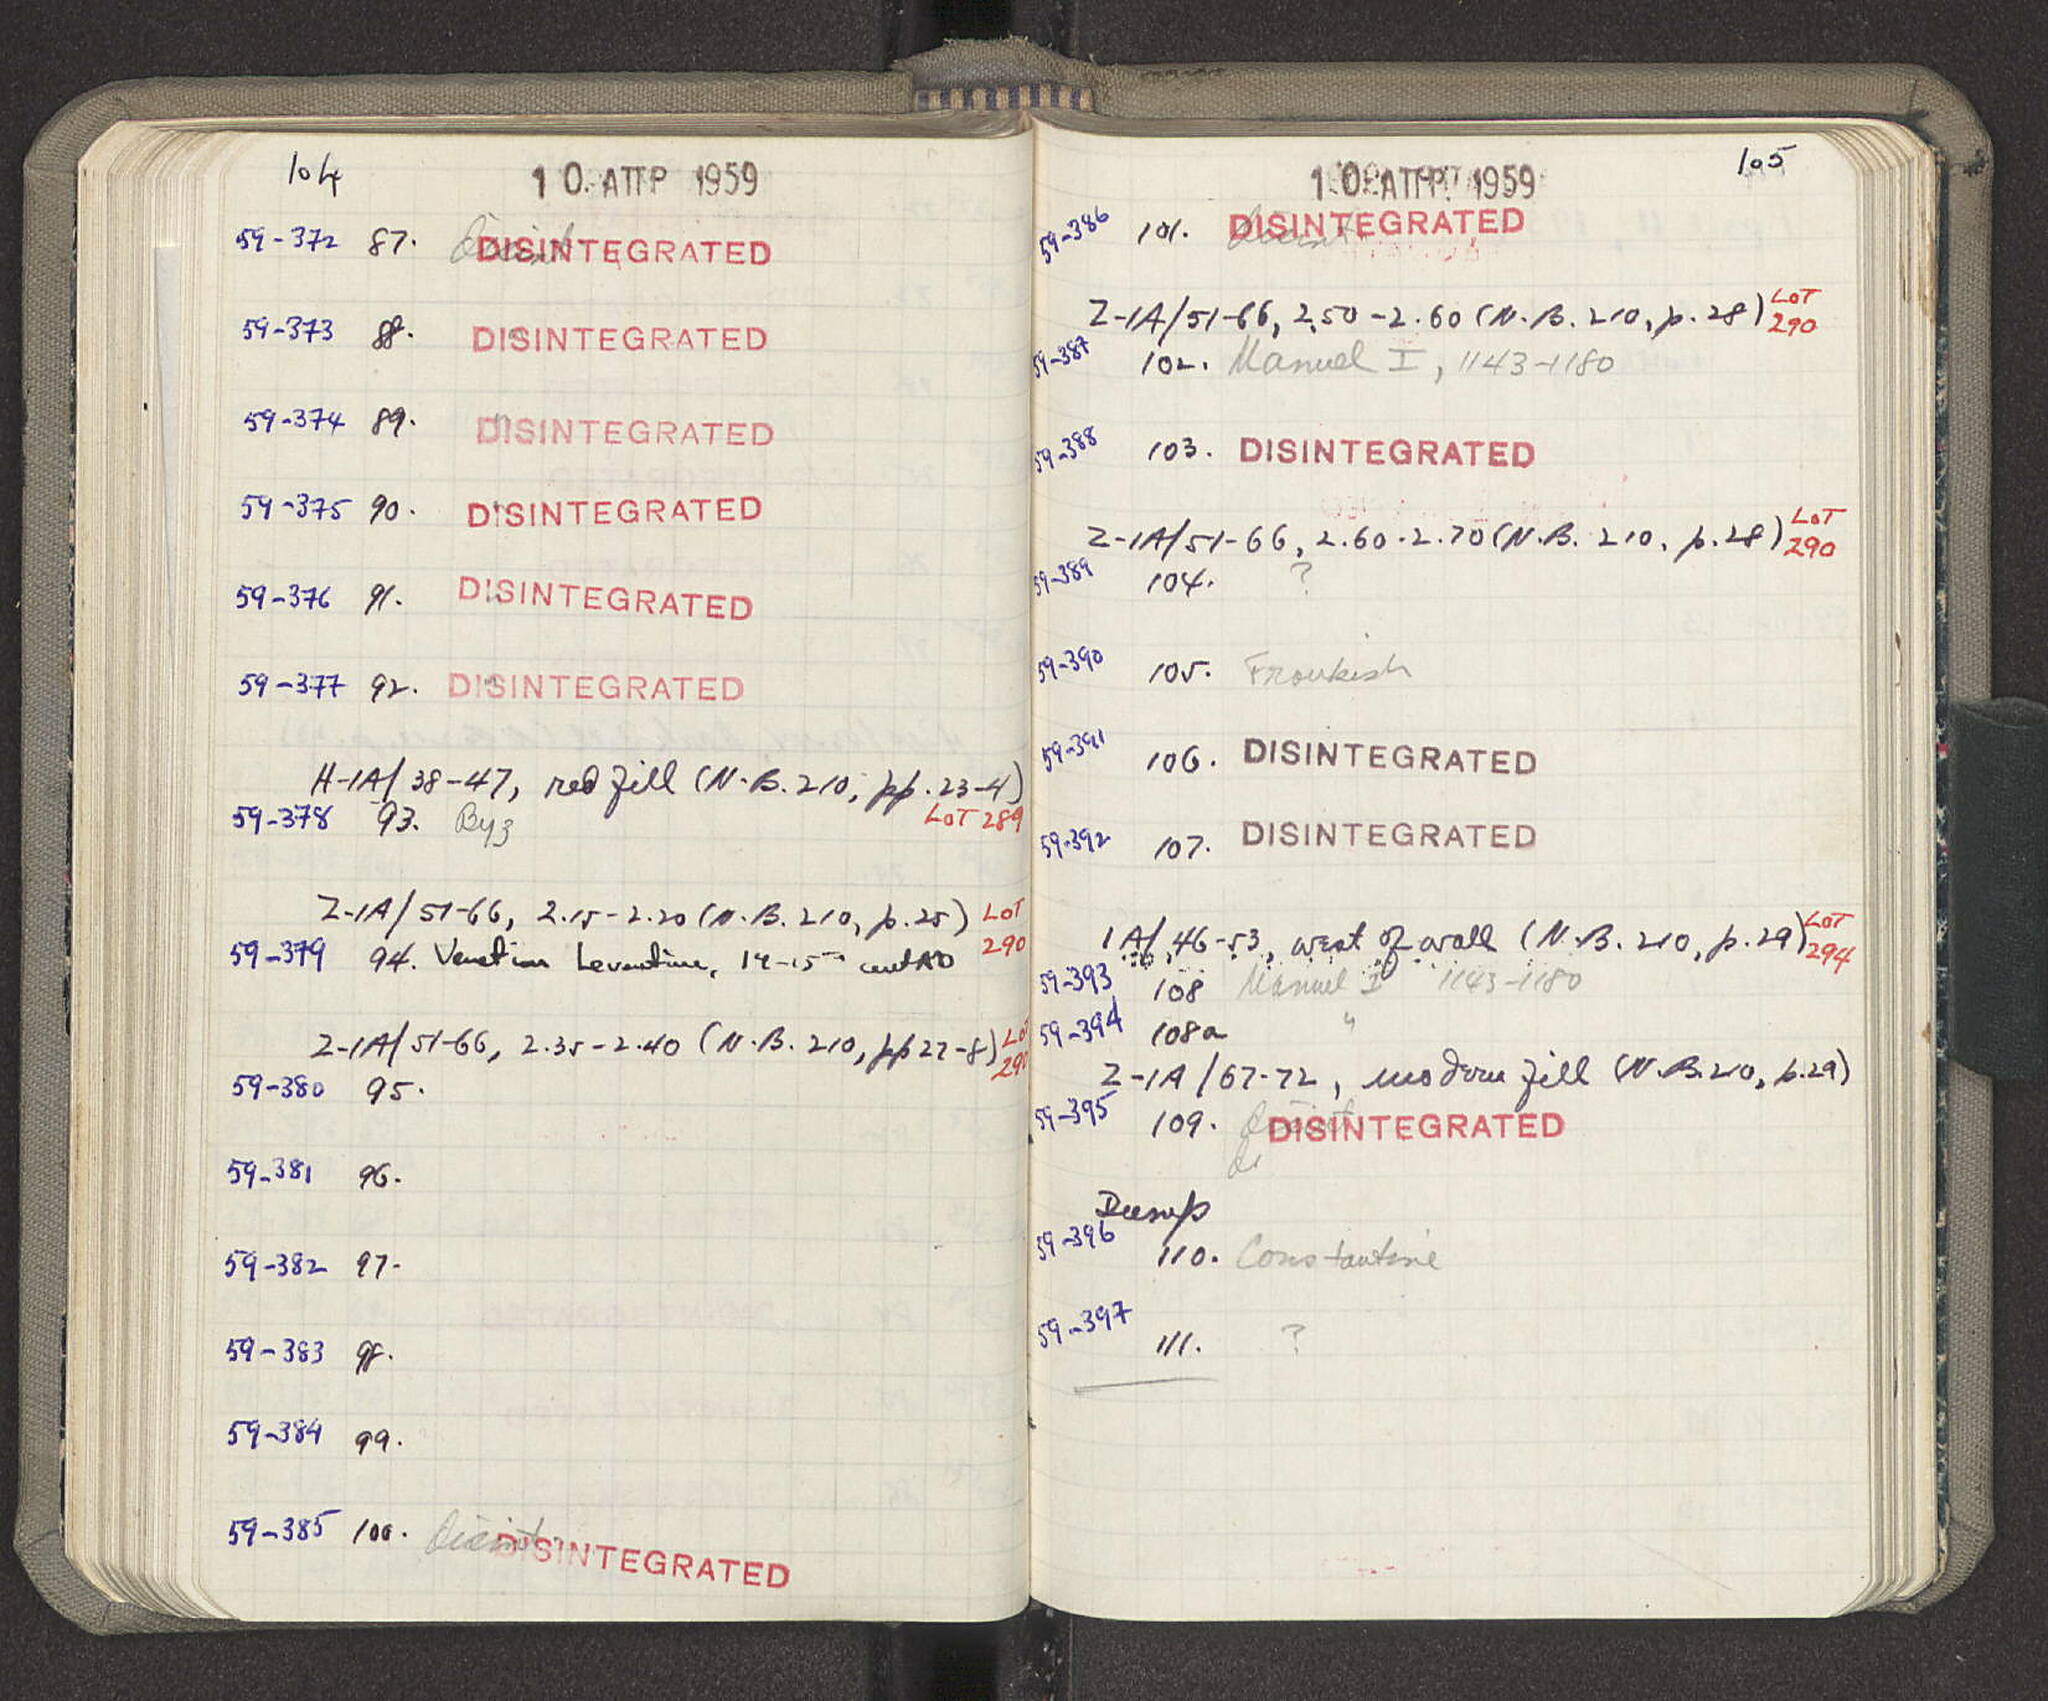 104
10. ΑΠΡ 1959
59-372 87. DISINTEGRATED
59-373 88. DISINTEGRATED
59-374 89. DISINTEGRATED
59-375 90. DISINTEGRATED
59-376 91. DISINTEGRATED
59-377 92. DISINTEGRATED
H-1A/38-47, red fill (N.B. 210, pp. 23-4)
LOT 289
59-378 93. Byz
Z-1A/51-66, 2.15-2.20 (N.B. 210, p. 25) LOT 290
59-379 94. Venetian Levantine, 14-15 cent AD
Z-1A/51-66, 2.35-2.40 (N.B. 210, pp 27-8) LOT 290
59-380 95.
59-381 96.
59-382 97.
59-383 98.
59-384 99.
59-385 100. Disint. DISINTEGRATED
105
10. ΑΠΡ. 1959
59-386 101. Disint DISINTEGRATED
Z-1A/51-66, 2.50-2.60 (N.B. 210, p. 28) LOT 290
59-387 102. Manuel I, 1143-1180
59-388 103. DISINTEGRATED
Z-1A/51-66, 2.60-2.70 (N.B. 210, p. 28) LOT 290
59-389 104. ?
59-390 105. Frankish
59-391 106. DISINTEGRATED
59-392 107. DISINTEGRATED
1A/46-53, west of wall (N.B. 210, p. 29) LOT 294
59-393 108 Manuel I 1143-1180
59-394 108a "
Z-1A/67-72, modern fill (N.B. 210, p. 29)
59-395 109. Disint DISINTEGRATED
Di
Dump
59-396 110. Constantine
59-397 111. ?